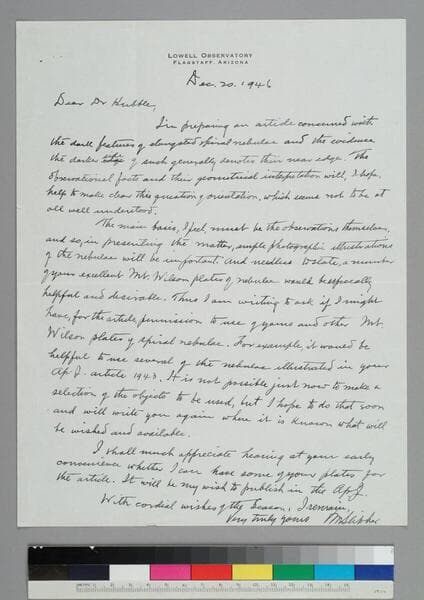 LOWELL OBSERVATORY
FLAGSTAFF, ARIZONA
Dec. 20. 1946
Dear Dr Hubble,
I'm preparing an article concerned with
the dark features of elongated spiral nebulae and the evidence
the darker edge of such generally denotes their near edge. The
observational facts and their geometrical interpretation will, I hope,
help to make clear this question of orientation, which seems not to be at
all well understood.
The main basis, I feel, must be the observations themselves,
and so, in presenting the matter, ample photographic illustrations
of the nebulae will be important. And needless to state, a number
of your excellent Mt. Wilson plates of nebulae would be especially
helpful and desirable. Thus I am writing to ask if I might
have, for the article, permission to use of yours and other Mt.
Wilson plates of spiral nebulae. For example, it would be
helpful to use several of the nebulae illustrated in your
Ap J. article 1943. It is not possible just now to make a
selection of the objects to be used, but I hope to do that soon
and will write you again when it is known what will
be wished and available.
I shall much appreciate hearing at your early
convenience whether I can have some of your plates for
the article. It will be my wish to publish in the Ap J.
With cordial wishes of the Season, I remain,
Very truly yours VM Slipher